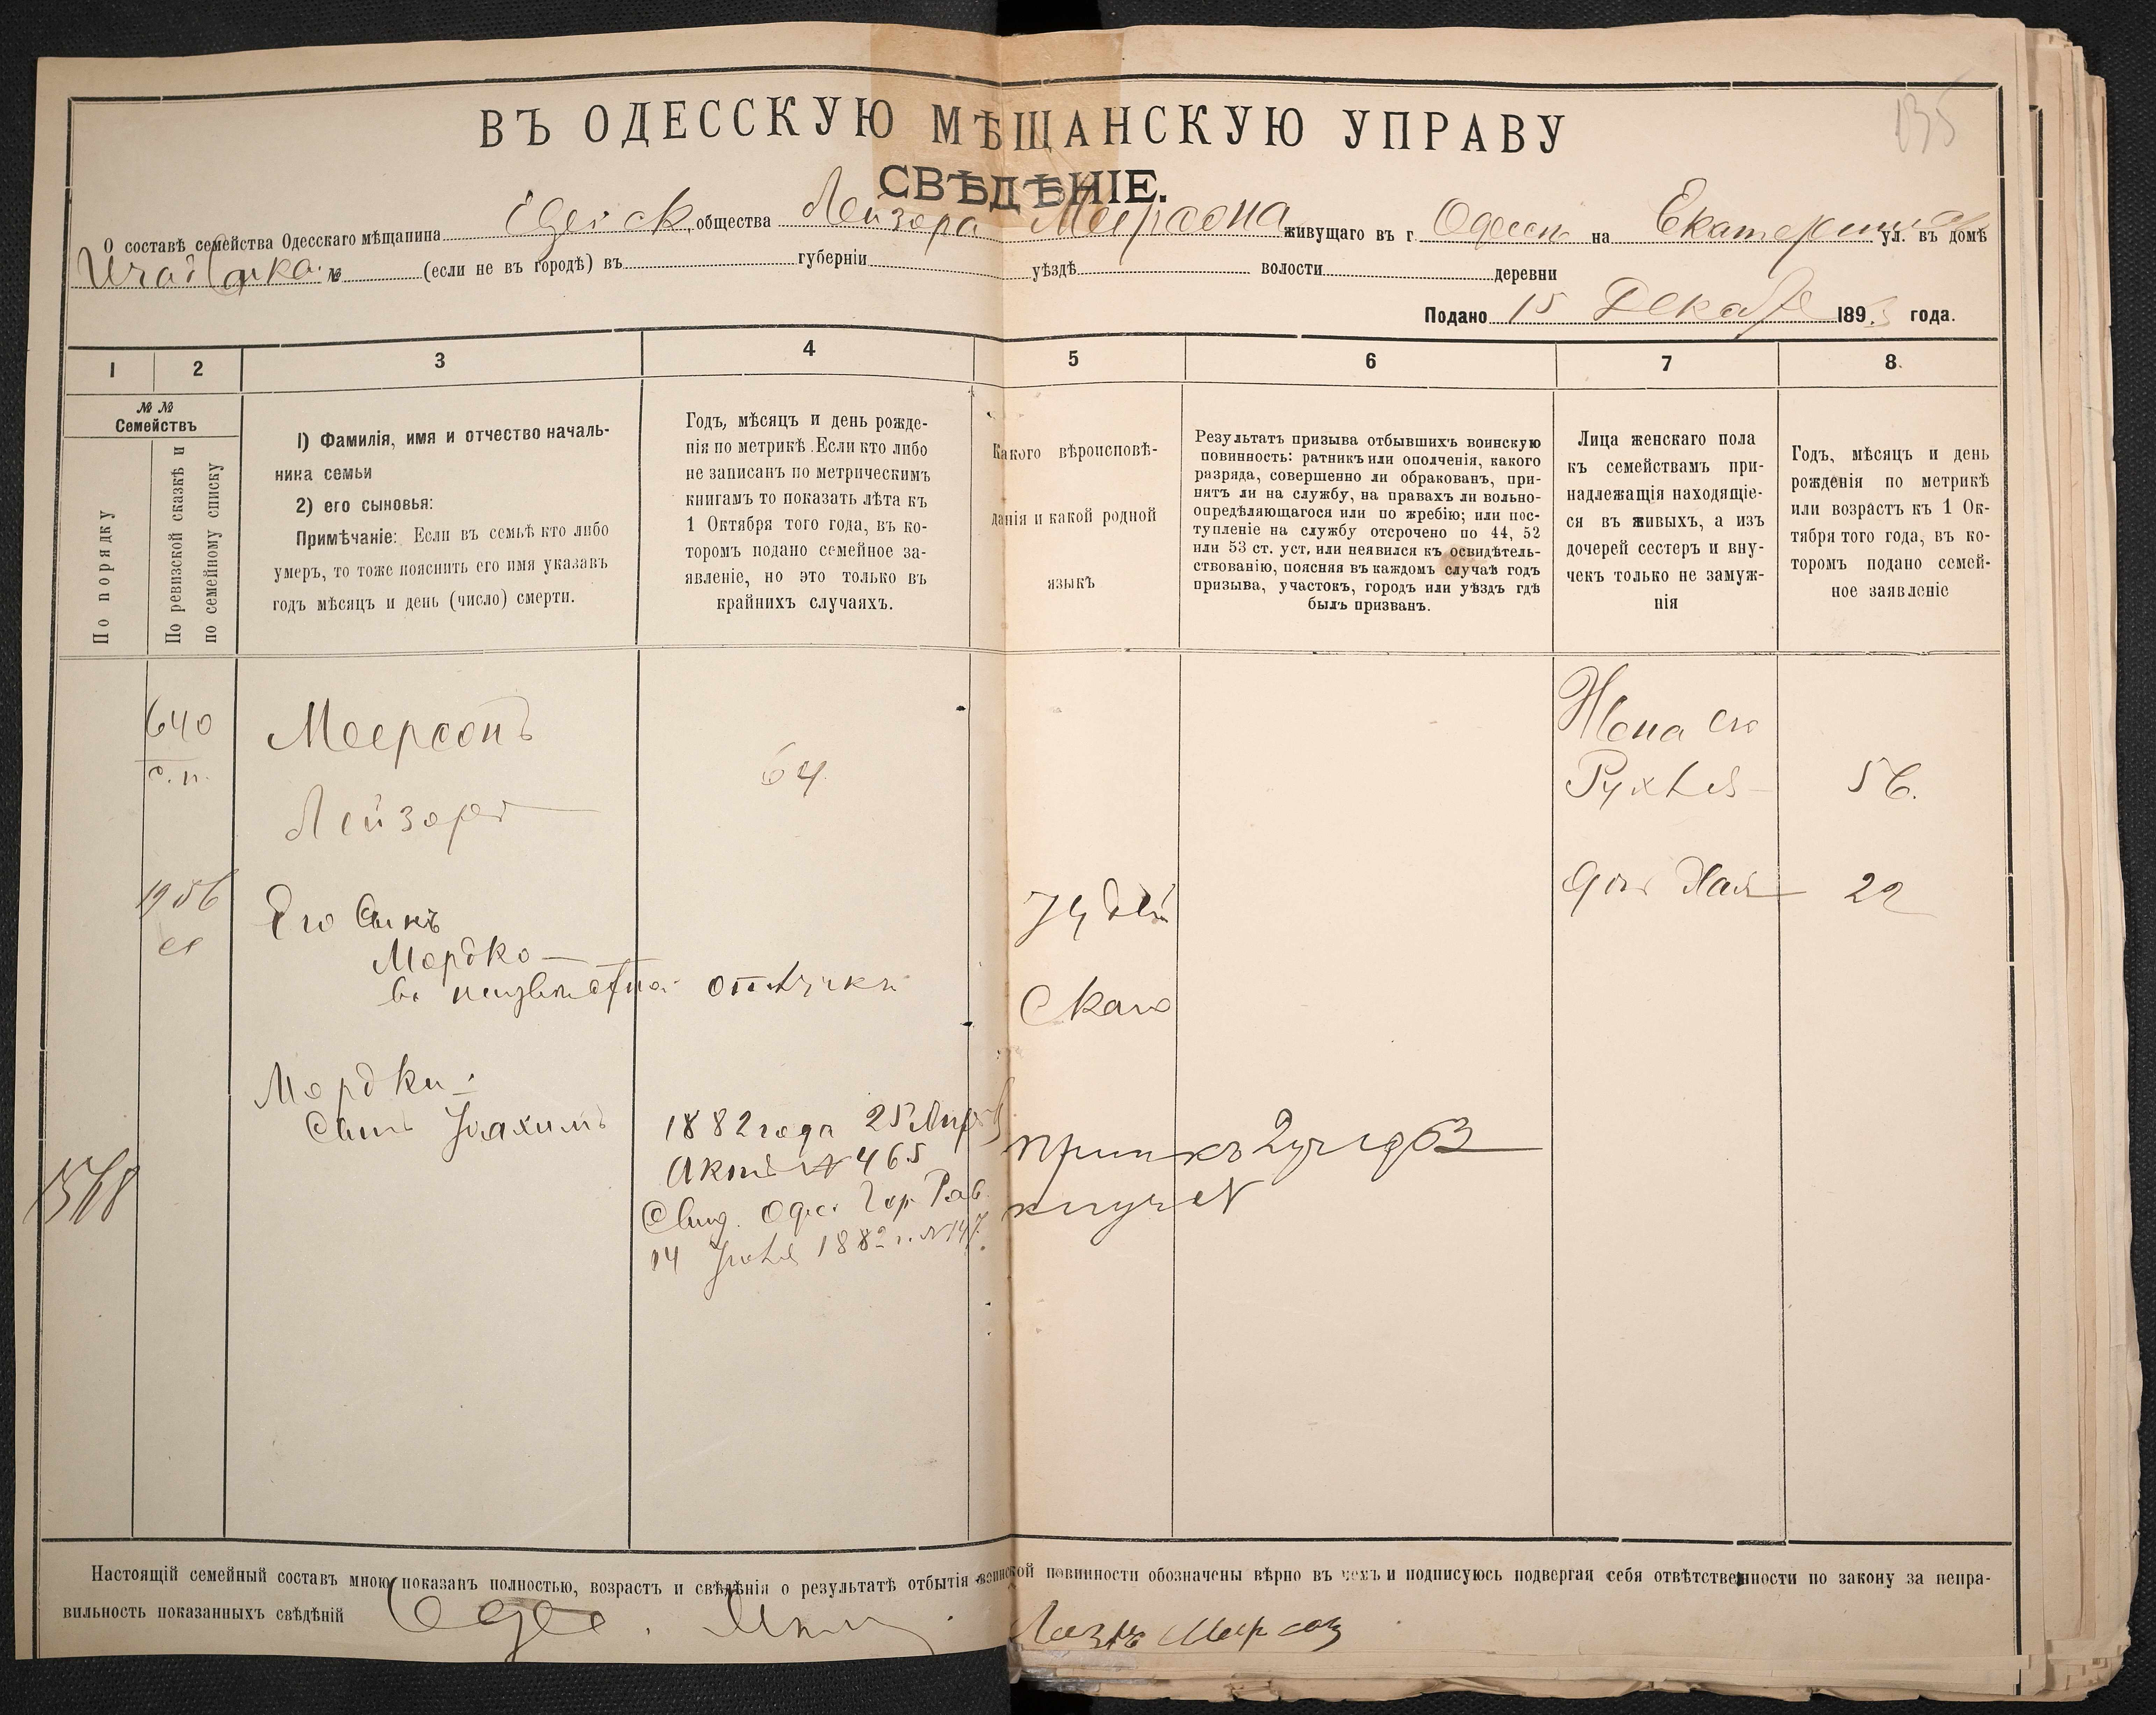 135
ВЪ ОДЕССКУЮ МѢЩАНСКУЮ УПРАВУ
СВѢДѢНІЕ.
О составѣ семейства Одесскаго мѣщанина общества Лейзора Меерсона живущаго въ г. Одессѣ на ул. въ домѣ
№ (если не въ городѣ) въ губерніи уѣздѣ волости деревни
Подано 15 Декаб 189 года.
1 2 3 4 5 6 7 8.
№№ Семействъ
По порядку
По ревизской сказкѣ и по семейному списку
1) Фамилія, имя и отчество началь-
ника семьи
2) его сыновья:
Примѣчаніе: Если въ семьѣ кто либо
умеръ, то тоже пояснить его имя указавъ
годъ мѣсяцъ и день (число) смерти.
Годъ, мѣсяцъ и день рожде-
нія по метрикѣ. Если кто либо
не записанъ по метрическимъ
книгамъ то показать лѣта къ
1 Октября того года, въ ко-
торомъ подано семейное за-
явленіе, но это только въ
крайнихъ случаяхъ.
Какого вѣроисповѣ-
данія и какой родной
языкъ
Результатъ призыва отбывшихъ воинскую
повинность: ратникъ или ополченія, какого
разряда, совершенно ли обракованъ, при-
нятъ ли на службу, на правахъ ли вольно-
опредѣляющагося или по жребію; или пос-
тупленіе на службу отсрочено по 44, 52
или 53 ст. уст, или неявился къ освидѣтель-
ствованію, поясняя въ каждомъ случаѣ годъ
призыва, участокъ, городъ или уѣздъ гдѣ
былъ призванъ.
Лица женскаго пола
къ семействамъ при-
надлежащія находящіе-
ся въ живыхъ, а изъ
дочерей сестеръ и вну-
чекъ только не замуж-
нія
Годъ, мѣсяцъ и день
рожденія по метрикѣ
или возрастъ къ 1 Ок-
тября того года, въ ко-
торомъ подано семей-
ное заявленіе
640 Меерсонъ Жена его
с. п. 64 Рухля 56.
Лейзоръ
1956 Его Сынъ Іудей доч Хая 22
Мордко
въ неизвѣстной отлучки Скаго
Мордки
Сынъ Іоахимъ 1882 года 25 Апр
Актъ № 465
1568 Свид. Одес. Гор. Рав.
14 Іюля 1882 г. № 147.
Настоящій семейный составъ мною показанъ полностью, возрастъ и свѣдѣнія о результатѣ отбытія воинской повинности обозначены вѣрно въ чемъ и подписуюсь подвергая себя отвѣтственности по закону за непра-
вильность показанныхъ свѣдѣній